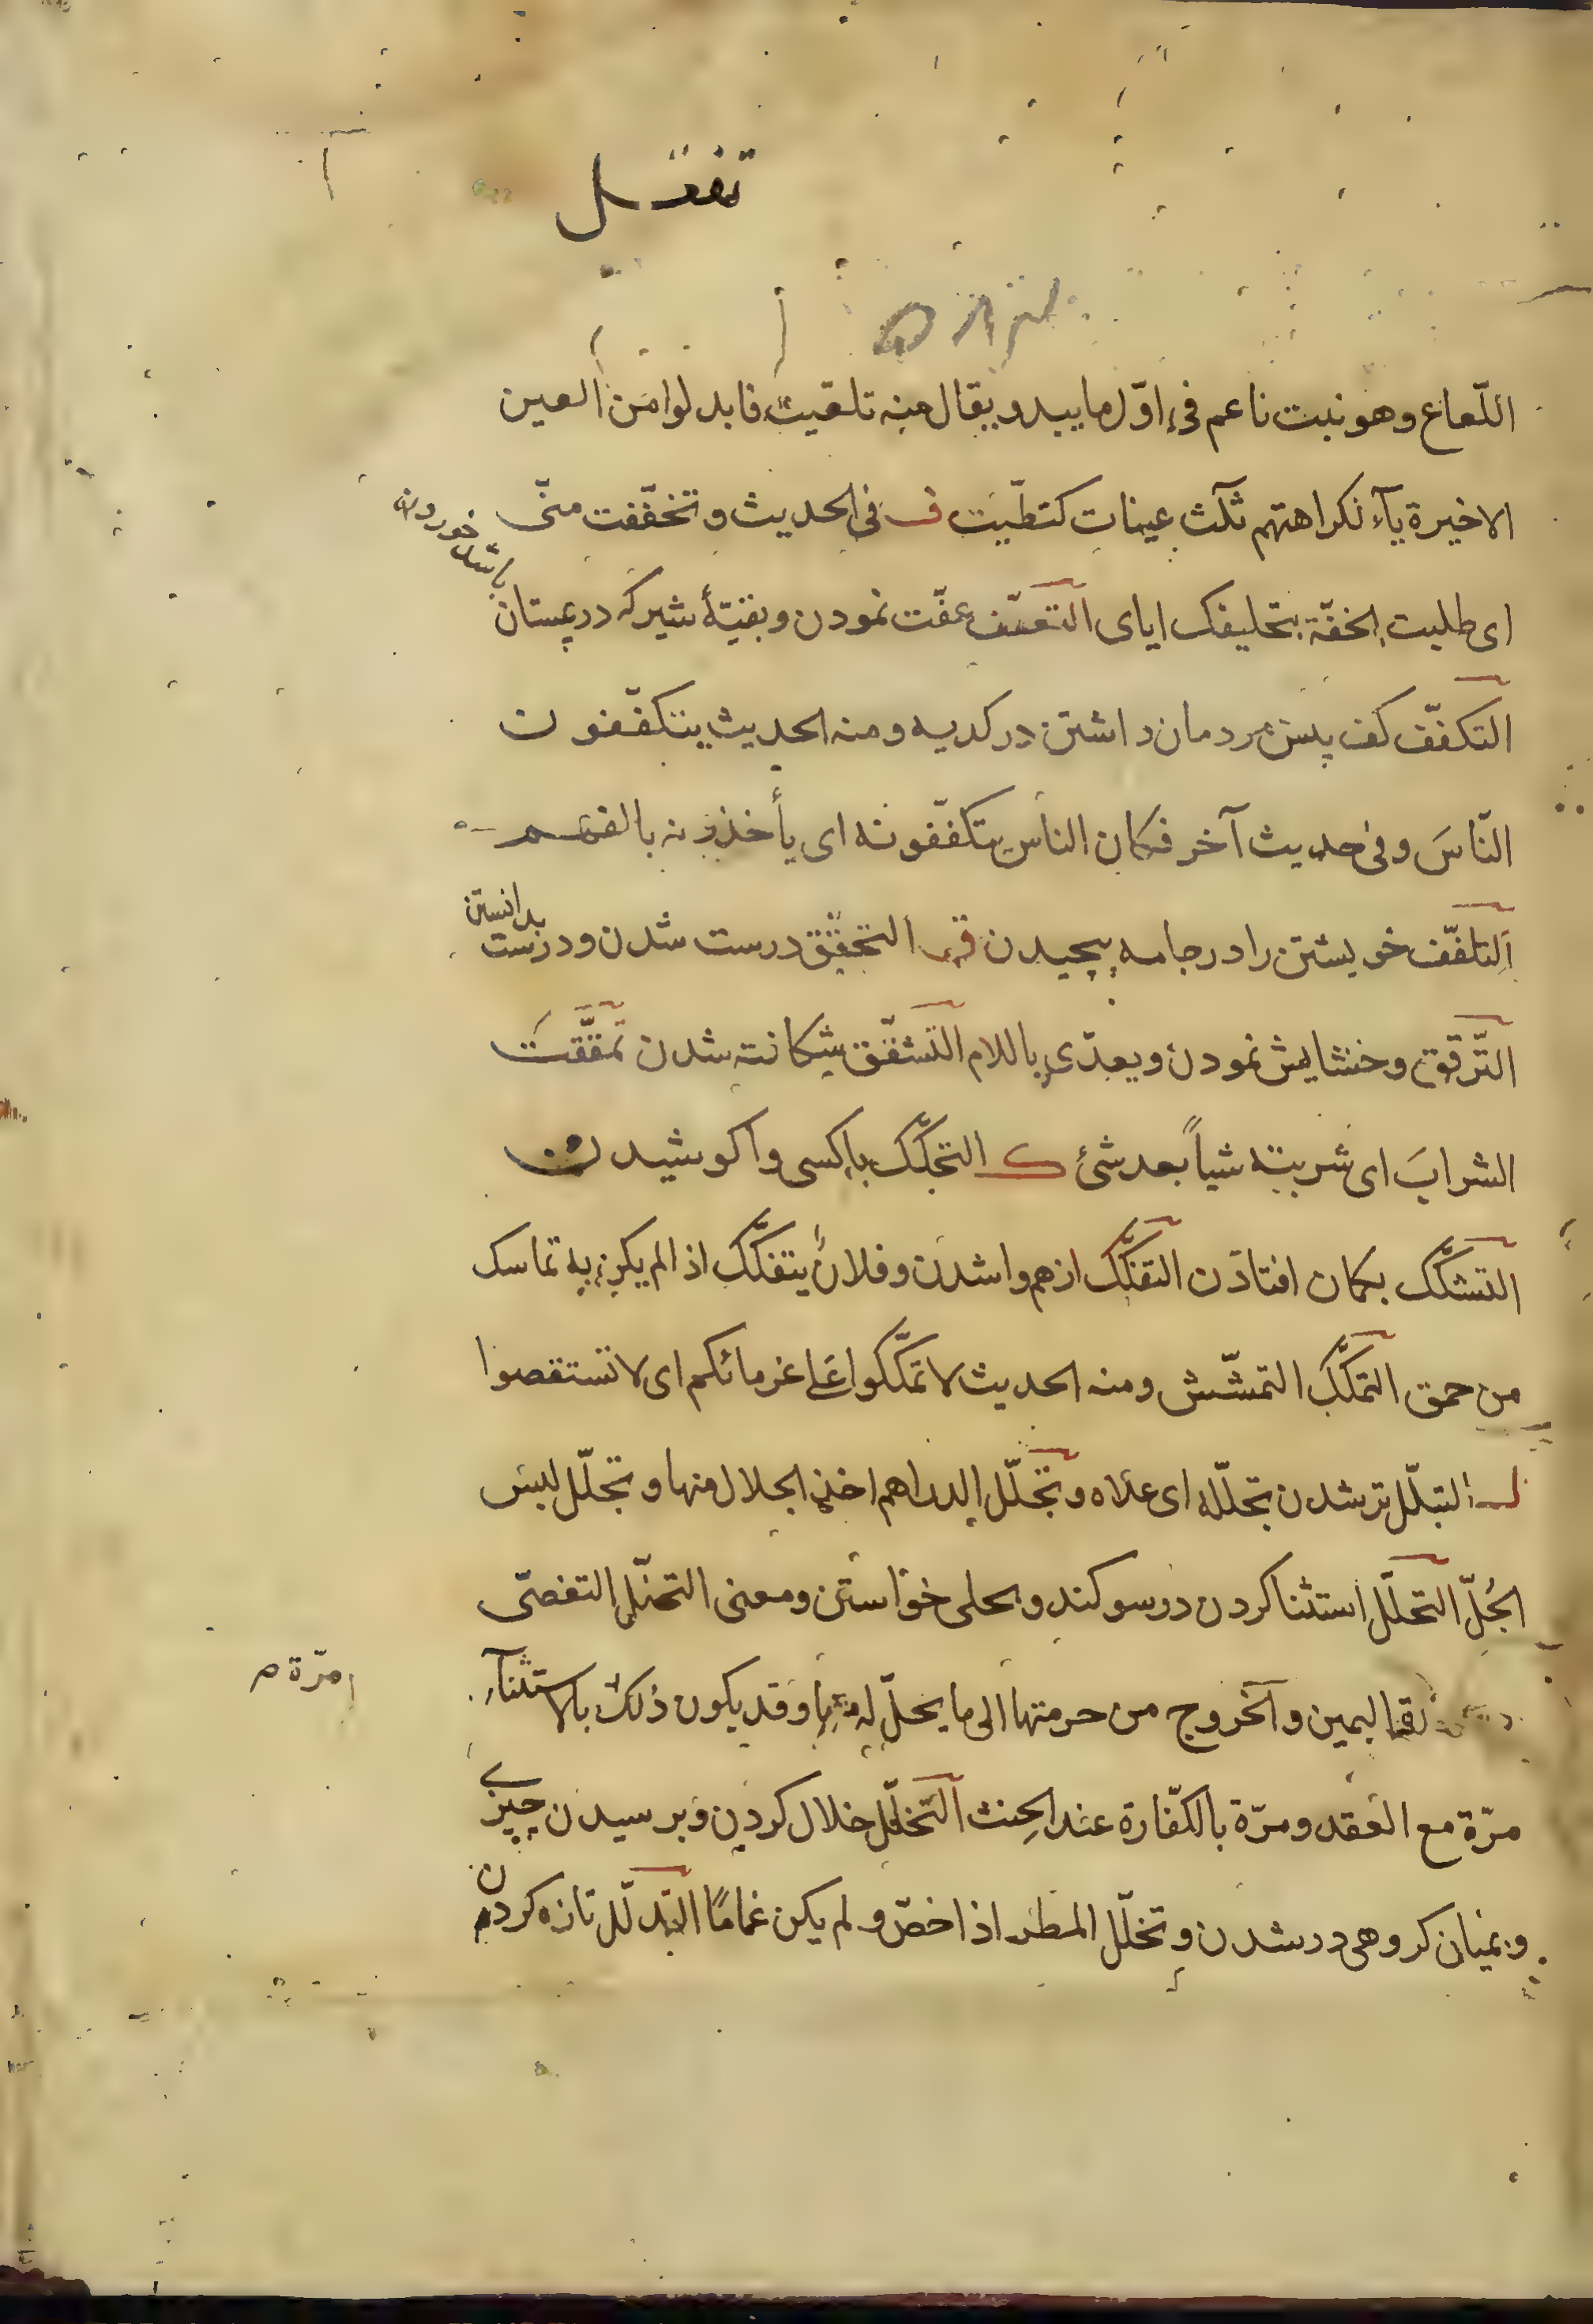 تفعّل
اللّعاع وهو نبت ناعم فى اوّل ما يبدو يقال منه تلعّيت فابدلوا من العين
الاخيرة يآء لكراهتهم ثلث عينات كتظنّيت ف فى الحديث وتخفّفت منّى
اى طلبت الخفّة بتحليفك اياى التعفّف عفّت نمودن وبقيّۀ شير كه در پستان
باشد خوردن
التكفّف كف پيش مردمان داشتن در كديه ومنه الحديث يتكفّفون
النّاسَ وفى حديث آخر فكان الناس يتكفّفونه اى يأخذونه بالفهم
التلفّف خويشتن را در جامه پيچيدن ق التحقّق درست شدن ودرست
بدانستن
التّرقّق وخشايش نمودن ويعدّى باللام التشقّق شكافته شدن تمقّقت
الشرابَ اى شربته شياً بعد شئ ك التحكّك باكسى واكوشيدن
التشكّك بكمان افتادن التفكّك ازهم واشدن وفلانٌ يتفكّك اذا لم يكن به تماسك
من حمق التمكّك التمشّش ومنه الحديث لا تمكّكوا على غرمائكم اى لا تستقصوا
ل التبلّل تر شدن تجلّله اى علاه وتجلّل الدراهم اخذ الجلال منها وتجلّل لبس
الجُلّ التحلّل استثنا كردن در سوكند وبحلى خواستن ومعنى التحلّل التفصّى
اليمين والخروج من حرمتها الى ما يحلّ له منها وقد يكون ذلك بالاستثنآء
مرّة م
مرّة مع العقد ومرّة بالكفّارة عند الحِنث التخلّل خلال كردن وبرسيدن چيزے
وبميان كروهى در شدن وتخلّل المطر اذا خصّ ولم يكن عامًا التدلّل نازه كردن